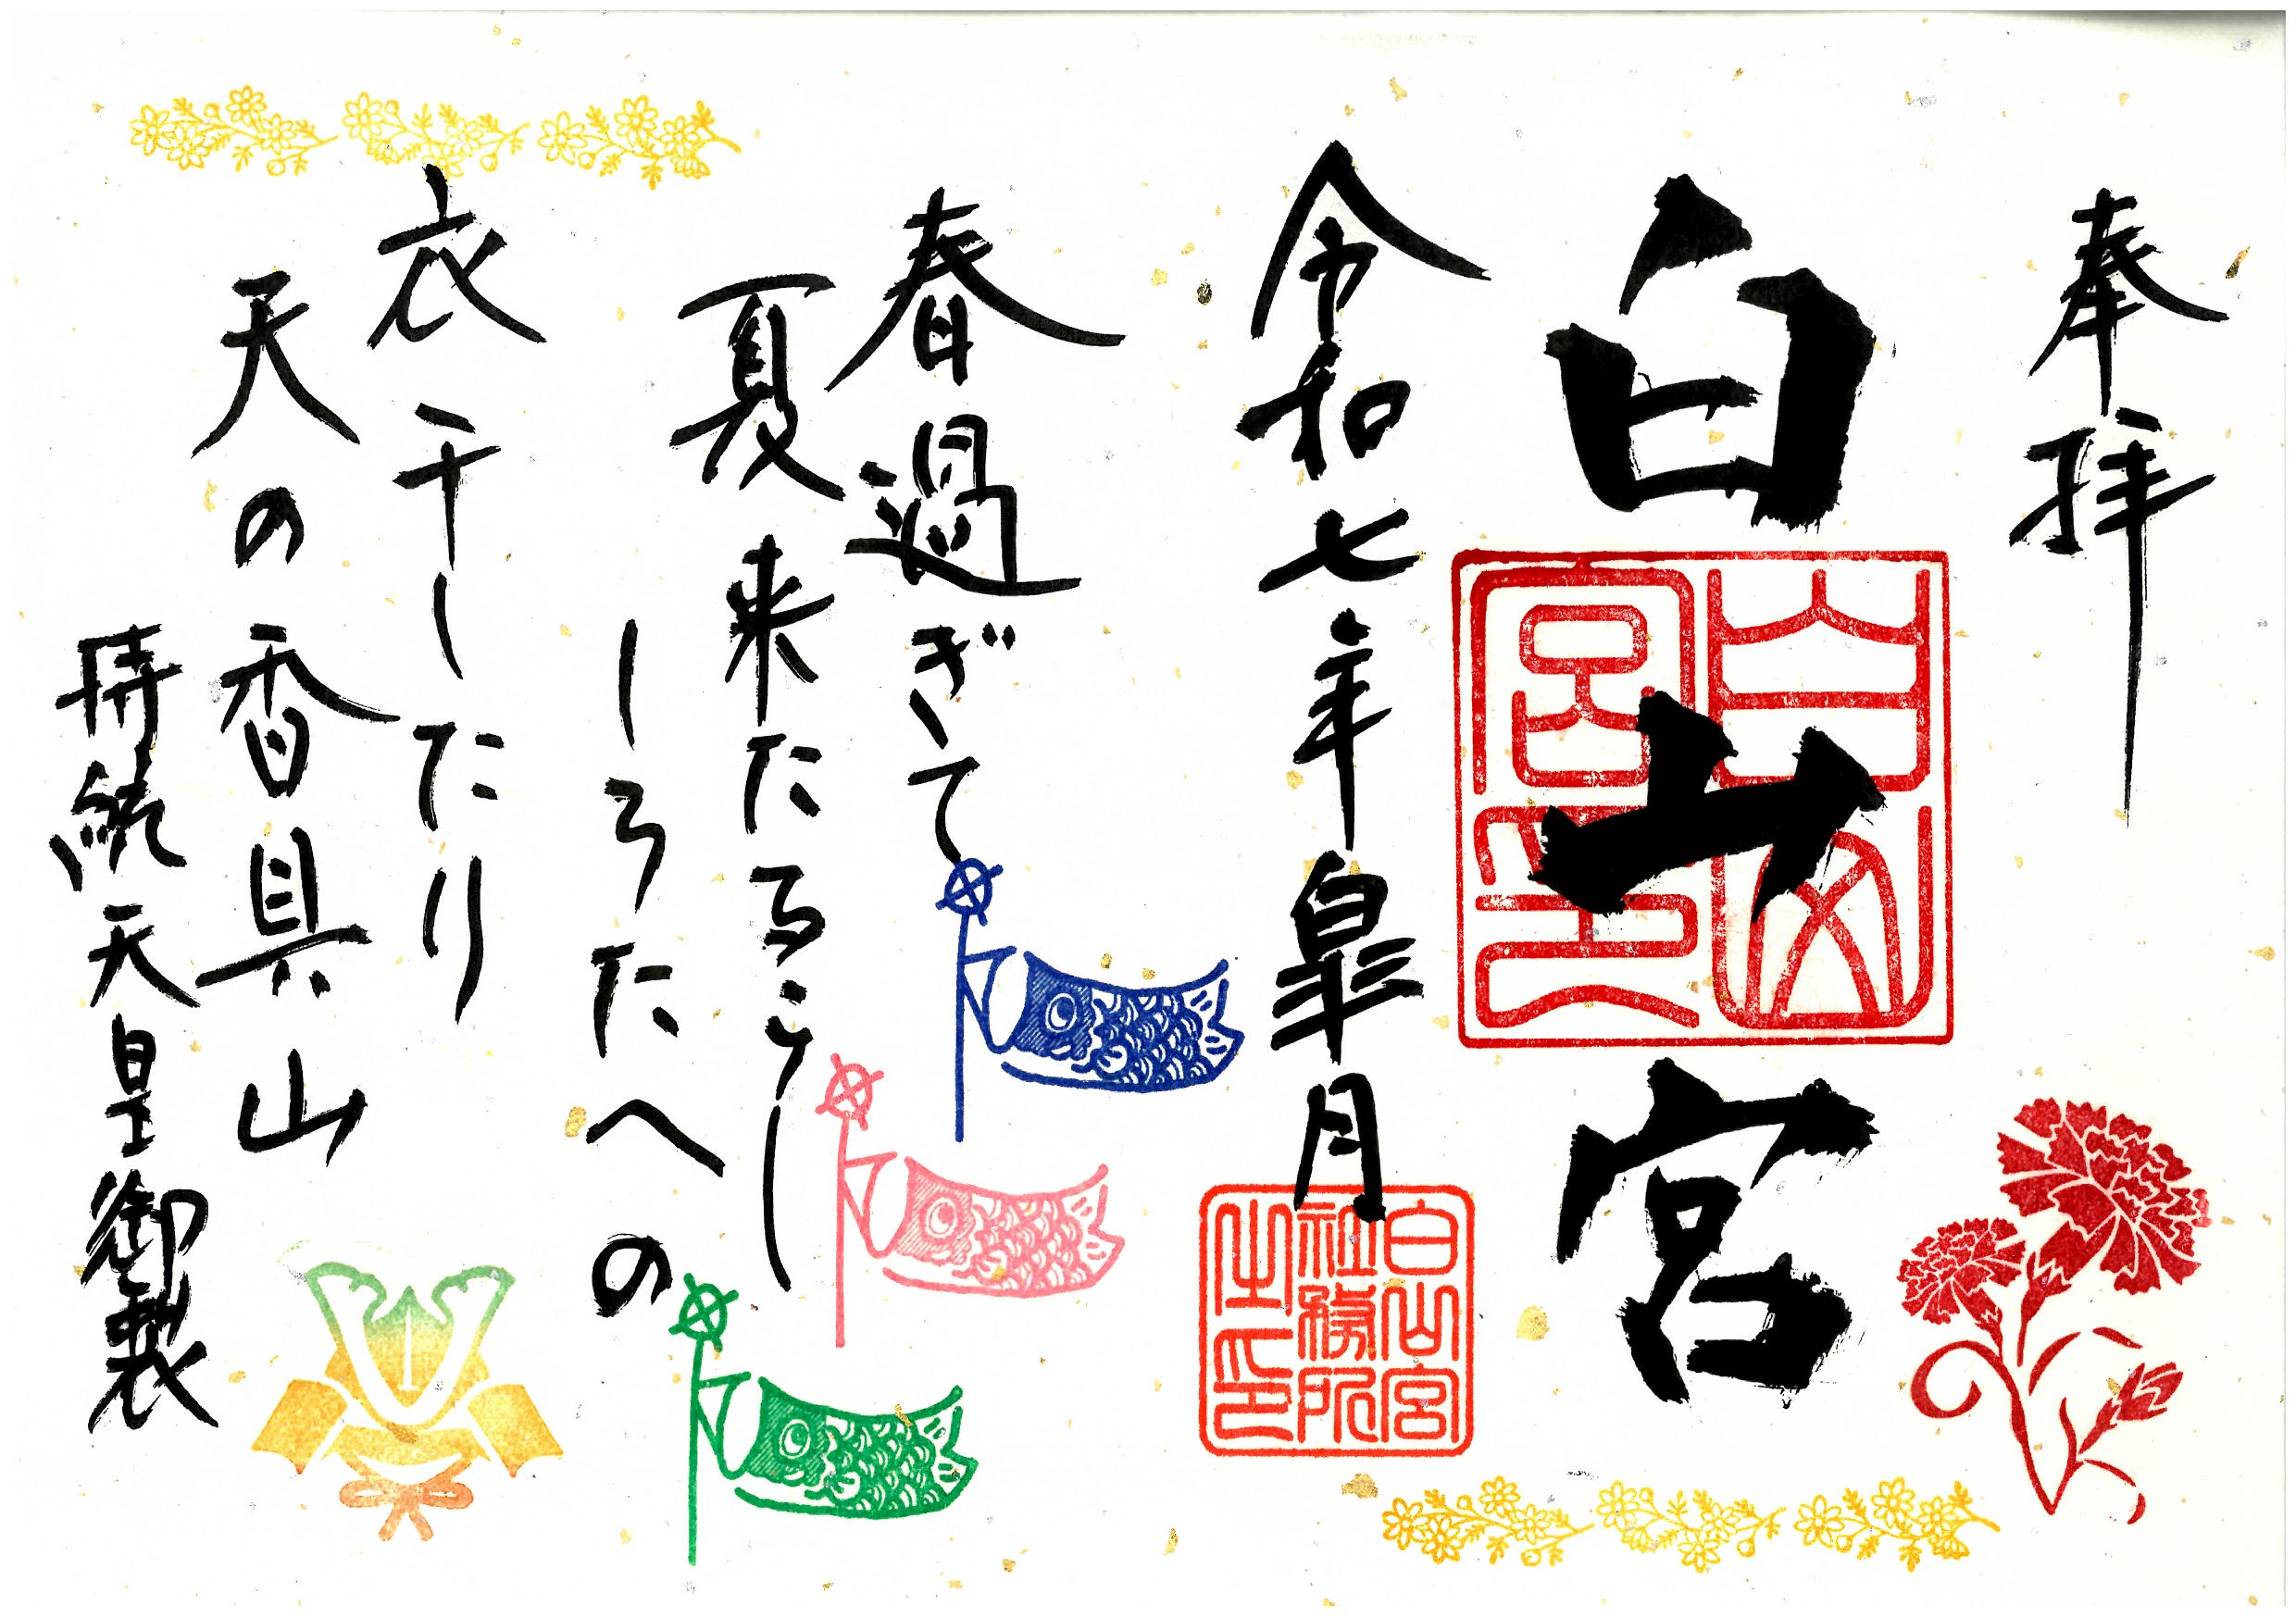 奉拝
白山宮
白山宮印
令和七年皐月
白山宮
社務所
之印
春過ぎて
夏来たるらし
しろたへの
衣干したり
天の香具山
持統天皇御製